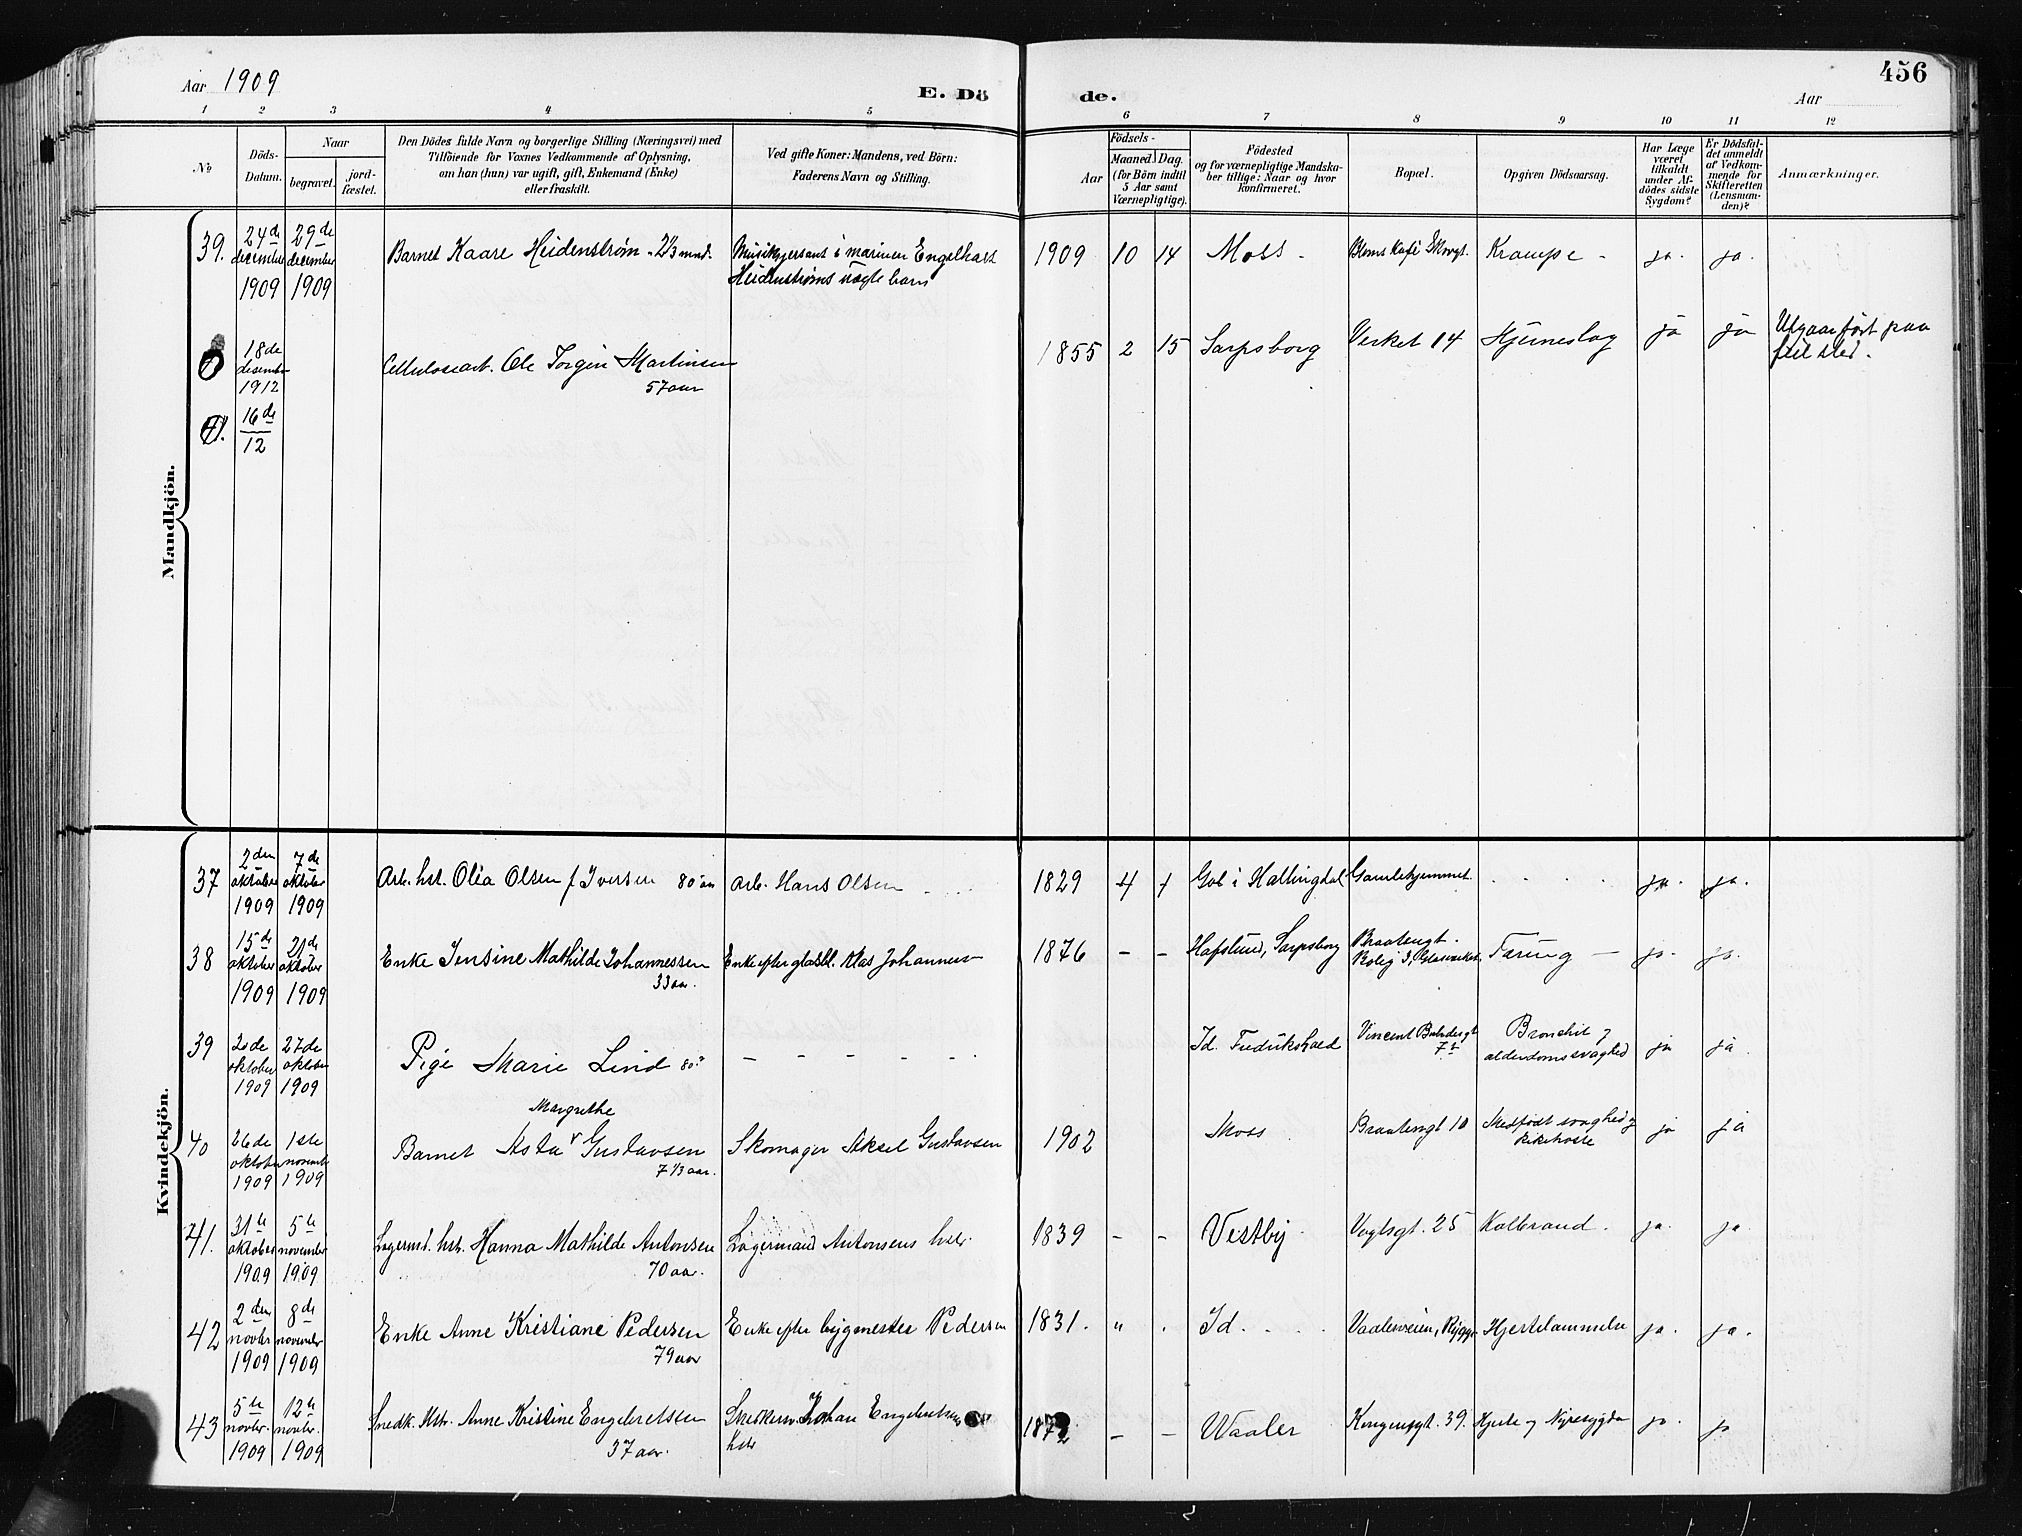 Aar 1909
E. Dö
de.
456
Aar
1 2 3 4 5 6 7 8 9 10 11 12
No
Döds-
Datum.
Naar
begravet.
jord-
fæstet.
Den Dödes fulde Navn og borgerlige Stilling (Næringsvei) med
Tilföiende for Voxnes Vedkommende af Oplysning,
om han (hun) var ugift, gift, Enkemand (Enke)
eller fraskilt.
Ved gifte Koner: Mandens, ved Börn:
Faderens Navn og Stilling.
Födsels-
Aar
Maaned. Dag.
(for Börn indtil
5 Aar samt
Værnepligtige).
Födested
og for værnepligtige Mandska-
ber tillige: Naar og hvor
konfirmeret.
Bopæl.
Opgiven Dödsaarsag.
Har Læge
været
tilkaldt
under Af-
dödes sidste
Sygdom?
Er Dödsfal-
det anmeldt
af Vedkom-
mende for
Skifteretten
(Lensman-
den)?
Anmærkninger.
Mandkjön.
39. 24de december 1909 29de december 1909 Barnet Kaare Heidenstrøm - 2 1/3 mnd. Musiksersant i marinen Engelhart
Heidenstrøms uægte barn 1909 10 14 Moss - Kafé Skovgt. Krampe - ja. ja.
18de desember 1912 Celluloseart. Ole Torgin Martinsen
57 aar 1855 2 15 Sarpsborg Verket 14 Hjerneslag ja ja Utgaar ført paa
feil sted.
41. 16de
12
Kvindekjön.
37 2den oktober 1909 7de oktober 1909 Arb. hst. Olia Olsen f Iversen 80 aar Arb. Hans Olsen 1829 4 1 Gol i Hallingdal Gamlehjemmet. ja. ja.
38 15de oktober 1909 21de oktober 1909 Enke Jensine Mathilde Johannessen
33 aar. Enke efter glasbl. Klas Johannes- 1876 - - Hafslund, Sarpsborg Braatengt.
Bolig 3, Glasverket Tæring - ja. ja.
39 20de oktober 1909 27de oktober 1909 Pige Marie Lind 80 - - - - - Id. Fredrikshald Vincent Buddesgt
7 Bronchit og
alderdomssvaghed ja ja
40 26de oktober 1909 1ste november 1909 Barnet Asta Margrethe Gustavsen
7 1/3 aar. Skomager Aksel Gustavsen 1902 Moss Braatengt 10 Medfødt svaghed og
kikhoste ja ja
41. 31te oktober 1909 5te november 1909 Lagermd. hst. Hanna Mathilde Antonsen
70 aar. Lagermand Antonsens hstr. 1839 - - Vestby. Vogtsgt. 25 Kolbrand. ja. ja.
42 2den novbr 1909 8de november 1909 Enke Anne Kristiane Pedersen
79 aar Enke efter bygmester Pedersen 1831. " . Id. Vaalerveien, Rygge Hjertelammelse ja. ja.
43 5te novbr. 1909 12te novbr. 1909 Snedk. Hstr. Anne Kristine Engebretsen
37 aar. Snedkersv. Johan Engebretsens
hstr 1872 - - Waaler Kongensgt. 39. Hjerte og Nyresygdom ja. ja